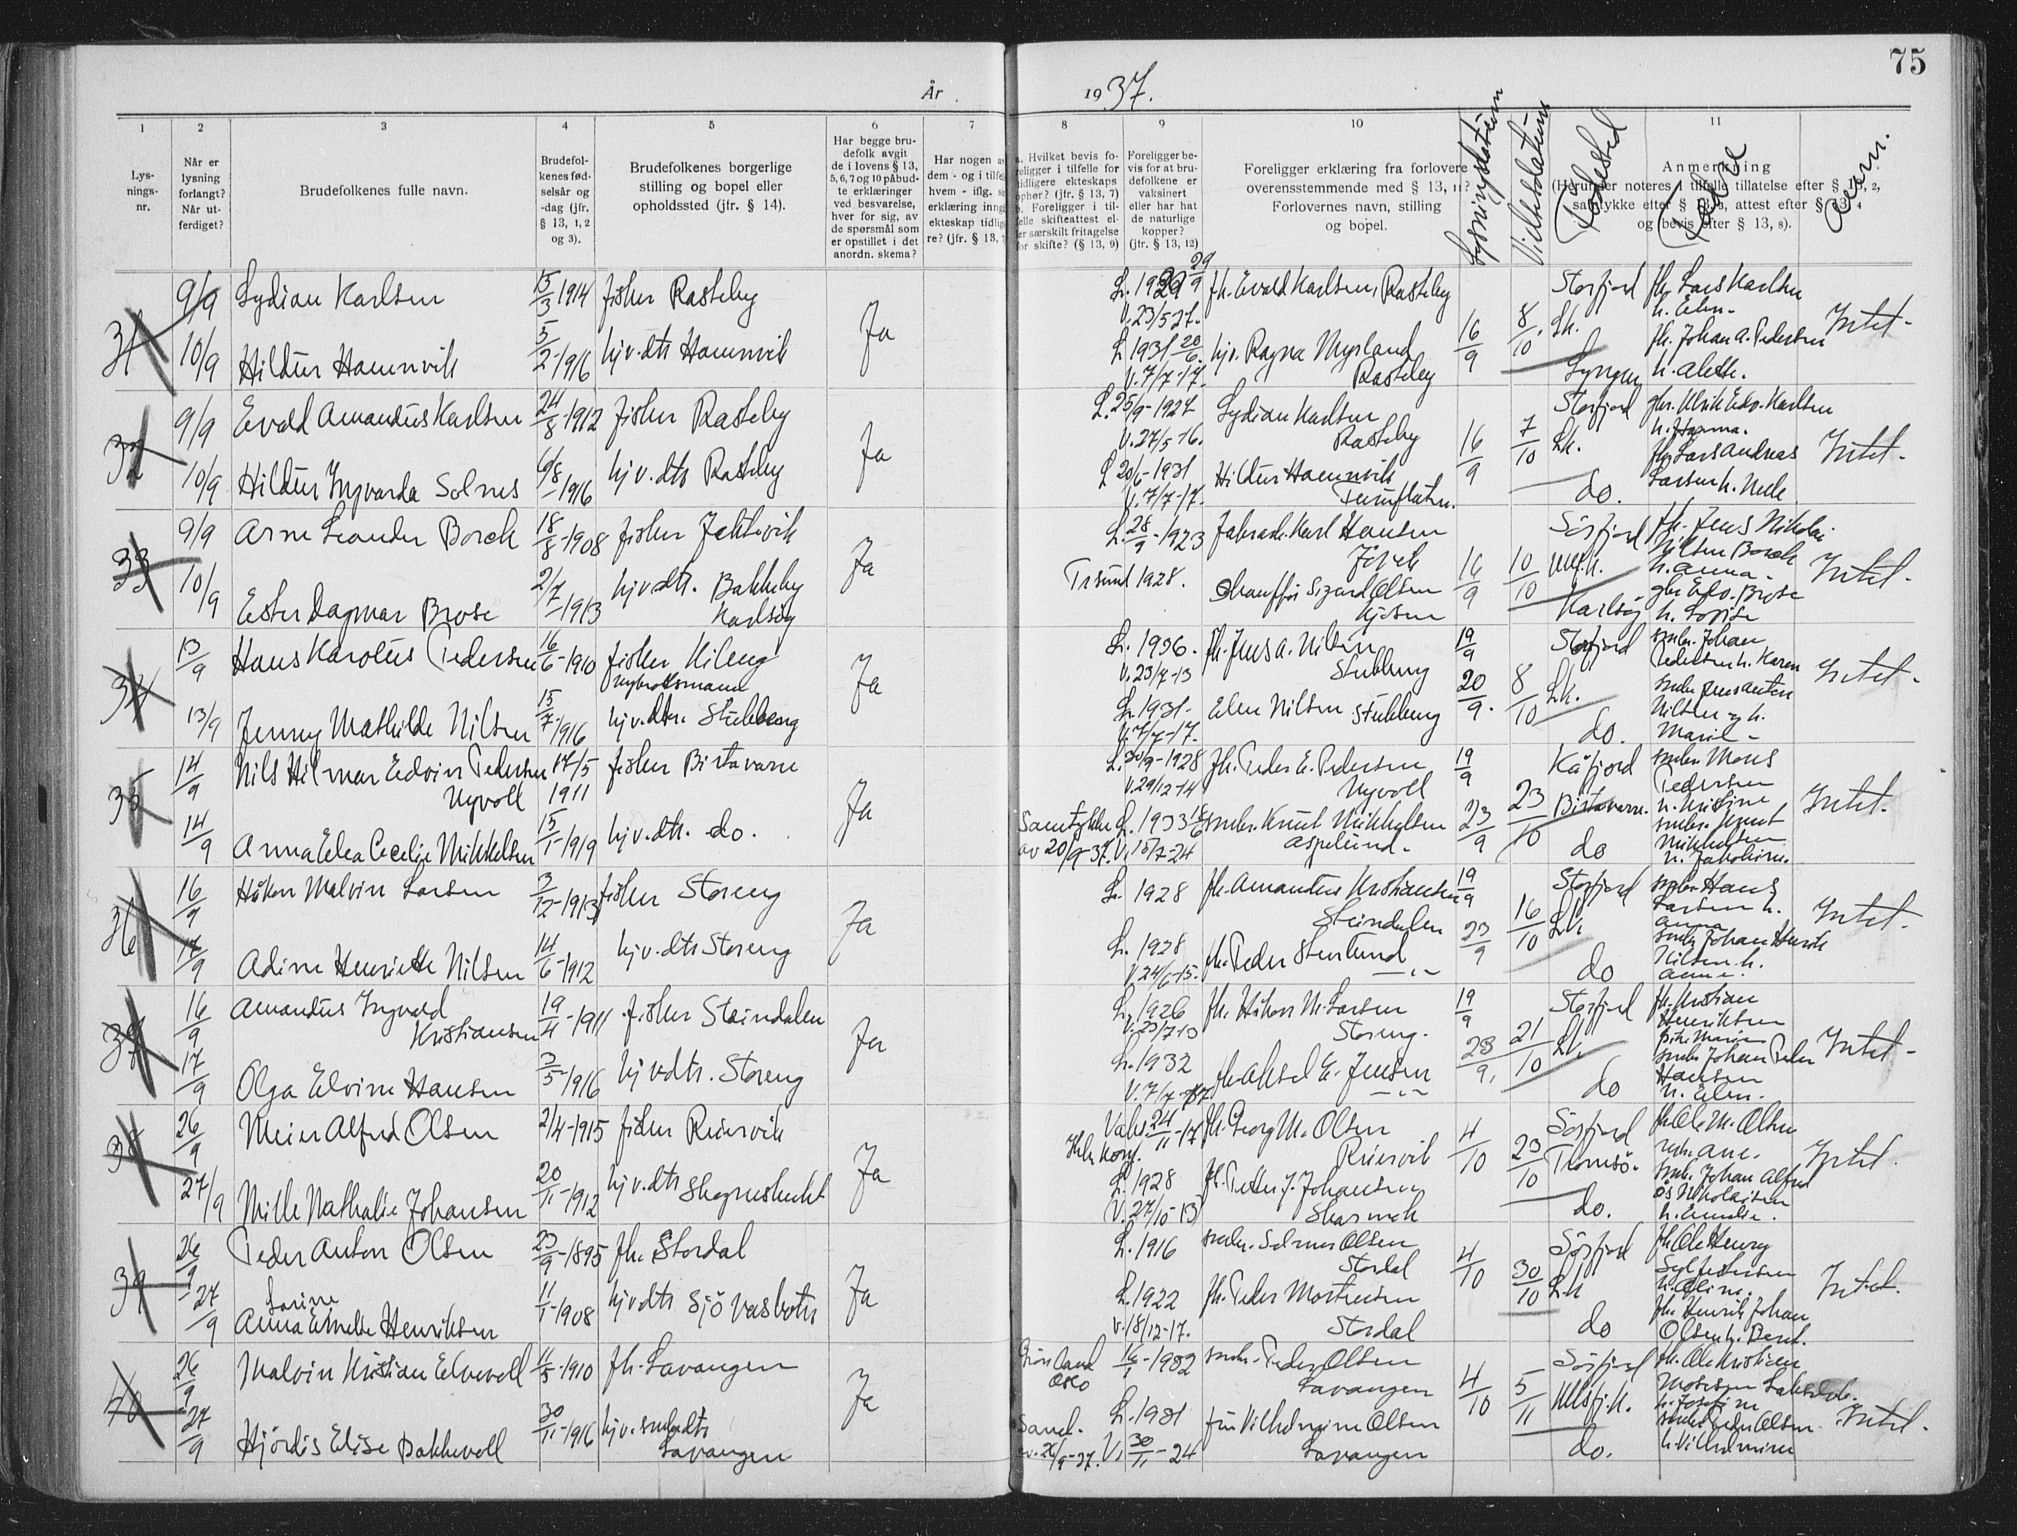 75
År 1937.
1
2
3
4
5
6
7
8
9
10
11
Lysningsdatum
Vielsesdatum
Födested
Læm.
Lys-
nings-
nr.
Når er
lysning
forlangt?
Når ut-
ferdiget?
Brudefolkenes fulle navn.
Brudefol-
kenes fød-
selsår og
-dag (jfr.
§ 13, 1, 2
og 3).
Brudefolkenes borgerlige
stilling og bopel eller
opholdssted (jfr. § 14).
Har begge bru-
defolk avgit
de i lovens § 13,
5, 6, 7 og 10 påbud-
te erklæringer
ved besvarelse,
hver for sig, av
de spørsmål som
er opstillet i det
anordn. skema?
Har nogen
dem - og i
hvem - iflg.
erklæring
ekteskap
re? (jfr. § 13,
a. Hvilket bevis fo-
religger i tilfelle for
tidligere ekteskaps
ophør? (jfr. § 13, 7)
b. Foreligger i til-
felle skifteattest el-
ler særskilt fritagelse
for skifte? (§ 13, 9)
Foreligger be-
vis for at bru-
defolkene er
vaksinert
eller har hat
de naturlige
kopper?
(jfr. § 13, 12)
Foreligger erklæring fra forlovere
overensstemmende med § 13, 11?
Forlovernes navn, stilling
og bopel.
Anmerkning
(Herunder noteres i tilfelle tillatelse efter § 1, 2,
samtykke efter § 13, 3, attest efter § 13, 4
og bevis efter § 13, 8).
31
9/9 Lydian Karlsen 15/3-1914 fisker Rasteby Ja L. 1929 29/9 fh. Evald Karlsen, Rasteby Storfjord fh. Lars Karlsen
V. 23/5 27. h. Elen.
10/9 Hildur Hamnvik 5/2-1916 hjv. dtr Hamnvik L 1931 20/6 hjv. Ragna Myrland 16/9 8/10 Lk. fh. Johan A. Pedersen Intet.
V. 7/7-17. Rasteby Lyngen h. Alette.
32
9/9 Evald Amandus Karlsen 24/8-1912 fisker Rasteby Ja L. 25/9-1927 Lydian Karlsen Storfjord gbr. Ulrik Edv. Karlsen
V. 27/5-16. Rasteby 16/9 7/10 Lk. h. Hanna. Intet.
10/9 Hildur Ingvarda Solnes 6/8-1916 hjv. dtr Rasteby L 20/6-1931 Hildur Hamnvik Lars Andreas
V. 7/7-17. do. Larsen h. Nele
33
9/9 Arne Leander Borch 18/8-1908 fisker Jektevik Ja L. 28/9-1923 Karl Hansen Sörfjord fh. Jens Nikolai
Jövik Nilsen Borch
10/9 2/7-1913 hjv. dtr. Bakkeby Tr.sund 1928. Chauffør Sigurd Olsen 16/9 10/10 h. Anna. Intet.
Ester Dagmar Brose Karlsöy Kjosen Karlsöy gbr Edv. Brose
h. Lovise
34
13/9 Hans Karolus Pedersen 16/6-1910 fisker Kileng Ja L. 1926. fh. Jens A. Nilsen 19/9 Storfjord smbr. Johan
nybrottsmann V. 23/7-13 Stubbeng Pedersen h. Karen Intet.
13/9 Jenny Mathilde Nilsen 15/7-1916 hjv. dtr. Stubbeng L. 1931. Elen Nilsen Stubbeng 20/9. 8/10 Lk. smbr Jens Anton
V. 7/7-17. do. Nilsen og h.
Marie.
35
14/9 Nils Hilmar Edvin Pedersen 17/5 1911 fisker Birtavarre Ja L. 30/9-1928 fh. Peder E. Pedersen 19/9 Kåfjord smbr. Mons
Nyvoll V. 29/12-14 Nyvoll Pedersen
14/9 Anna Elea Cecelie Mikkelsen 15/1-1919 hjv. dtr. do. Samtykke L. 1933 18/6 smbr. Knut Mikkelsen 23/9 23/10 Birtavarre. h. Kristine Intet.
av 20/9-37. V. 15/7-24 Aspelund. do smbr. Knut
Mikkelsen
36
16/9 Håkon Malvin Larsen 3/12-1913 fisker Storeng Ja L. 1928 fh. Amandus Kristiansen 19/9 Storfjord smbr Hans
Steindalen 16/10 Lk. Larsen h.
Anna Intet.
17/9 Adine Henriette Nilsen 14/6-1912 hjv. dtr Storeng L. 1928 fh. Peder Stenlund 23/9 smbr Johan Henrik
V. 24/6-15. —"— do Nilsen h.
37
16/9 Amandus Ingvald 19/4-1911 fisker Steindalen Ja L. 1926 fh. Håkon M. Larsen 19/9 Storfjord fh. Kristian
Kristiansen V. 23/7-13 Storeng. 21/10 Lk. Henriksen
17/9 Olga Elvine Hansen 3/5-1916 hjv dtr. Storeng L. 1932 fh. Aksel E. Jensen 23/9, smbr Johan Peder Intet.
V. 7/7-17 —"— do Hansen
h. Elen.
38
26/9 Meier Alfred Olsen 2/4-1915 fisker Reiervik Ja Vaks. 24/11-17 fh. Georg M. Olsen 4/10 Sörfjord fh. Ole M. Olsen
Reiervik 23/10 Tromsö. Intet.
27/9 Mille Nathalie Johansen 20/11-1912 hjv. dtr L. 1928 fh. Petter J. Johansen smbr. Johan Alfred
V. 27/10-13 do. Nikolaisen
h. Emelie.
39
26/9 Peder Anton Olsen 23/9-1895 fh. Stordal Ja L. 1916 smbr. Selmer Olsen 4/10 Sörfjord fh. Ole Henry
Stordal
27/9 Larine
Anna Emelie Henriksen 11/1-1908 hjv dtr Sjövasbotn L. 1922 fh. Peder Mortensen 30/10 Lk h. Oline. Intet.
V. 18/12-17. Stordal do fh. Henrik Johan
Olsen h. Berit.
40
26/9 Malvin Kristian Elvevoll 11/5-1910 fh. Lavangen Ja Grönland 16/1-1932 smbr. Peder Olsen Sörfjord fh. Ole Kristian
Oslo Lavangen 4/10 5/11
27/9 Hjördis Elise Bakkevoll 30/11-1916 hjv. smbr dtr Samt. L. 1931 frk Vilhelmine Olsen h. Josefine
Lavangen av 26/9-37. V. 30/11-24 Lavangen do. smbr Peder Olsen Intet.
h. Vilhelmine